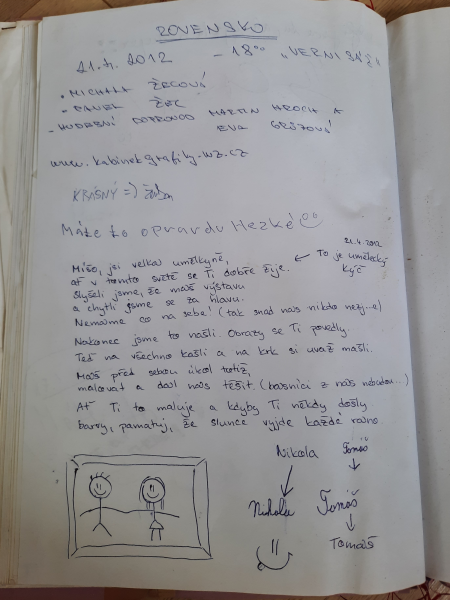 ROVENSKO
21.4. 2012 - 18⁰⁰ „VERNISÁŽ"
• MICHALA ŽECOVÁ
• PAVEL ŽEC
- HUDEBNÍ DOPROVOD MARTIN HROCH A
EVA GRŮZOVÁ
www.kabinetgrafiky.wz.cz
KRÁSNÝ =)
Máte to opravdu Hezké
21.4.2012
Míšo, jsi velká umělkyně, ← To je umělecký
ať v tomto světě se Ti dobře žije. kýč
Slyšeli jsme, že máš výstavu
a chytli jsme se za hlavu.
Nemáme co na sebe! (tak snad nás nikdo nezj...e)
Nakonec jsme to našli. Obrazy se Ti povedly.
Teď na všechno kašli a na krk si uvaž mašli.
Máš před sebou úkol totiž,
malovat a dál nás těšit. (básníci z nás nebudou...)
Ať Ti to maluje a kdyby Ti někdy došly
barvy, pamatuj, že slunce vyjde každé ráno
Nikola Tomáš
Nikola Tomáš
Tomáš